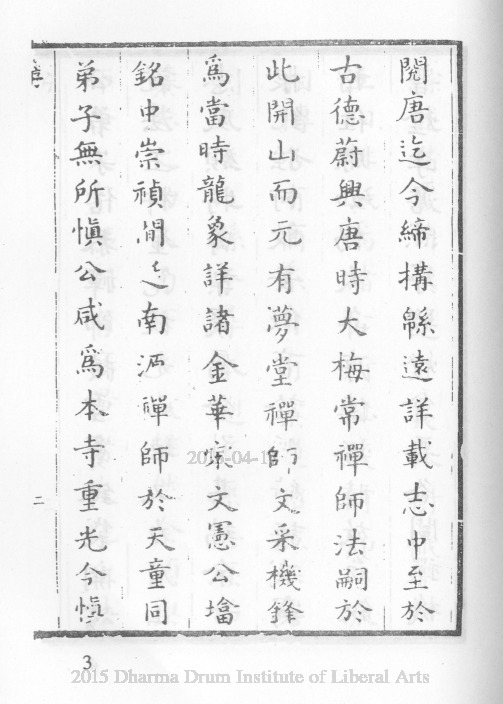 閱唐迄今締搆緜遠詳載志中至於
古德蔚興唐時大梅常禪師法嗣於
此開山而元有夢堂禪師文采機鋒
爲當時龍象詳諸金華宋文憲公㙮
銘中崇禎間 南 禪師於天童同
弟子無所愼公咸爲本寺重光今愼
序
二
2015-04-1
3
2015 Dharma Drum Institute of Liberal Arts